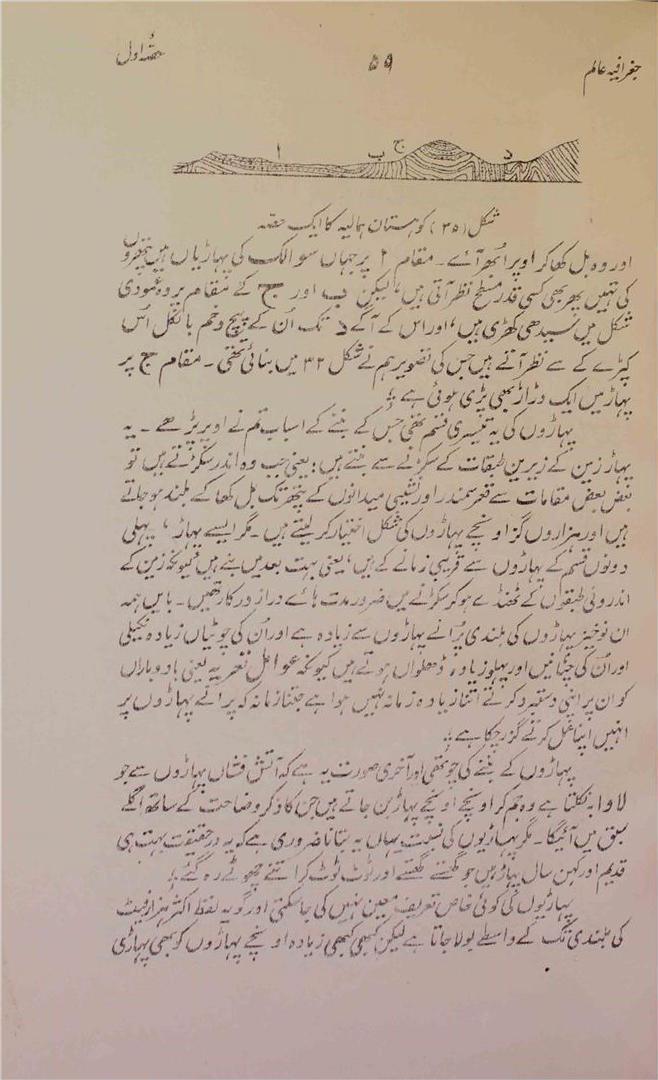 جغرافیہ عالم
۵۹
حصّہ اول
ا ب ج د
شکل (۳۵) کوہستان ہمالیہ کا ایک حصّہ
اور وہ بل کھا کر اوپر اُبھر آئے۔ مقام ا پر جہاں سوالک کی پہاڑیاں ہیں پتھروں
کی تہیں پھر بھی کسی قدر مسطح نظر آتی ہیں، لیکن ب اور ج کے مقام پر وہ عمودی
شکل میں سیدھی کھڑی ہیں، اور اس کے آگے د تک اُن کے پیچ و خم بالکل اُس
کپڑے کے سے نظر آتے ہیں جس کی تصویر ہم نے شکل ۳۲ میں بنائی تھی۔ مقام ج پر
پہاڑ میں ایک دراڑ بھی پڑی ہوئی ہے ؛
پہاڑوں کی یہ تیسری قسم تھی جس کے بننے کے اسباب تم نے اوپر پڑھے۔ یہ
پہاڑ زمین کے زیرین طبقات کے سکڑنے سے بنتے ہیں؛ یعنی جب وہ اندر سکڑتے ہیں تو
بعض بعض مقامات سے قعر سمندر اور نشیبی میدانوں کے پتھر تک بل کھا کے بلند ہو جاتے
ہیں اور ہزاروں گز اونچے پہاڑوں کی شکل اختیار کر لیتے ہیں۔ مگر ایسے پہاڑ، پہلی
دونوں قسم کے پہاڑوں سے قریبی زمانے کے ہیں، یعنی بہت بعد میں بنے ہیں؛ کیونکہ زمین کے
اندرونی طبقوں کے ٹھنڈے ہو کر سکڑنے میں ضرور مدت ہائے دراز درکار تھیں۔ بایں ہمہ
ان نوخیز پہاڑوں کی بلندی پُرانے پہاڑوں سے زیادہ ہے اور اُن کی چوٹیاں زیادہ نکیلی
اور اُن کی چٹانیں اور پہلو زیادہ ڈھلواں ہوتے ہیں کیونکہ عوامل تعریہ یعنی باد و باراں
کو ان پر اپنی دستبرد کرتے اتنا زیادہ زمانہ نہیں ہوا ہے جتنا زمانہ کہ پرانے پہاڑوں پر
انہیں اپنا عمل کرتے گزر چکا ہے ؛
پہاڑوں کے بننے کی چوتھی اور آخری صورت یہ ہے کہ آتش فشاں پہاڑوں سے جو
لاوا نکلتا ہے وہ جم کر اونچے اونچے پہاڑ بن جاتے ہیں جن کا ذکر وضاحت کے ساتھ اگلے
سبق میں آئیگا۔ مگر پہاڑیوں کی نسبت یہاں یہ بتانا ضروری ہے کہ یہ درحقیقت بہت ہی
قدیم اور کہن سال پہاڑ ہیں جو گھستے گھستے اور ٹوٹ ٹوٹ کر اتنے چھوٹے رہ گئے ؛
پہاڑیوں کی کوئی خاص تعریف معین نہیں کی جا سکتی اور گو یہ لفظ اکثر ہزار فیٹ
کی بلندی تک کے واسطے بولا جاتا ہے لیکن کبھی کبھی زیادہ اونچے پہاڑوں کو بھی پہاڑی